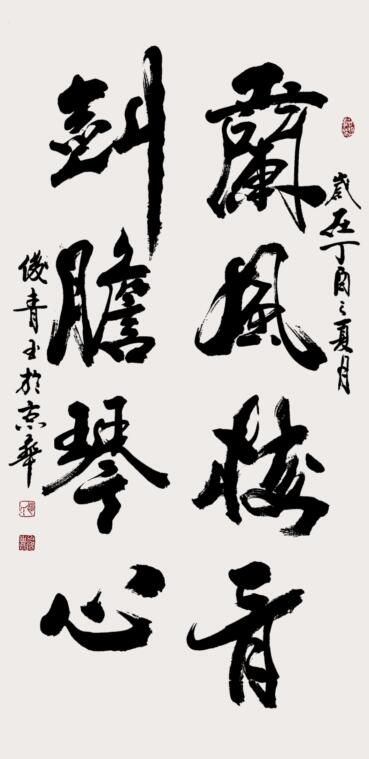 歲在丁酉之夏月
蘭風梅骨
劍膽琴心
俊青书於京華